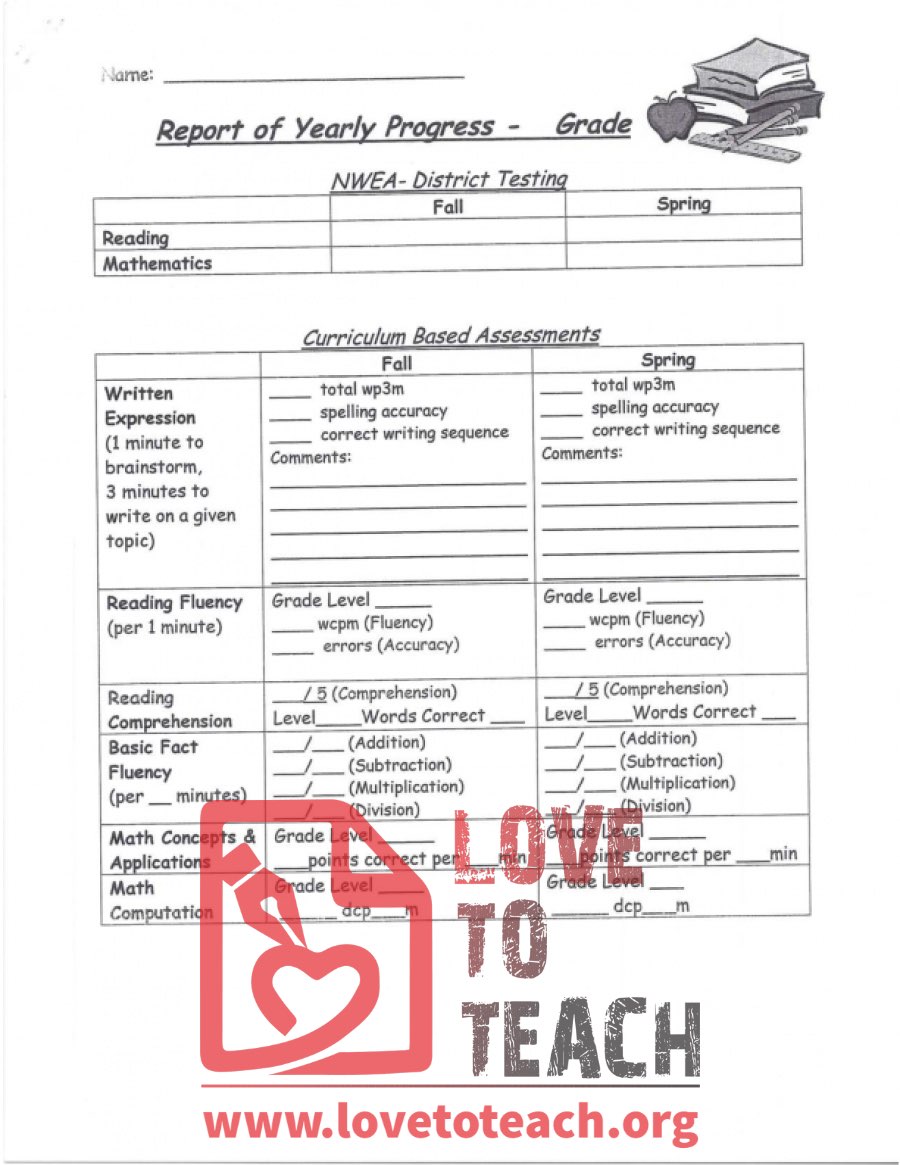 Name: ____________________
Report of Yearly Progress -    Grade
NWEA- District Testing
Fall Spring
Reading
Mathematics
Curriculum Based Assessments
Fall Spring
Written Expression (1 minute to brainstorm, 3 minutes to write on a given topic)
____ total wp3m
____ spelling accuracy
____ correct writing sequence
Comments:
____ total wp3m
____ spelling accuracy
____ correct writing sequence
Comments:
Reading Fluency
(per 1 minute)
Grade Level _____
____ wcpm (Fluency)
____ errors (Accuracy)
Grade Level _____
____ wcpm (Fluency)
____ errors (Accuracy)
Reading
Comprehension
___/ 5 (Comprehension)
Level____Words Correct ___
___/ 5 (Comprehension)
Level____Words Correct ___
Basic Fact
Fluency
(per __ minutes)
___/___ (Addition)
___/___ (Subtraction)
___/___ (Multiplication)
___/___ (Division)
___/___ (Addition)
___/___ (Subtraction)
___/___ (Multiplication)
___/___ (Division)
Math Concepts &
Applications
Grade Level _____
___points correct per ___min
Grade Level _____
___points correct per ___min
Math
Computation
Grade Level ____
_____ dcp___m
Grade Level ___
_____ dcp___m
LOVE
TO
TEACH
www.lovetoteach.org